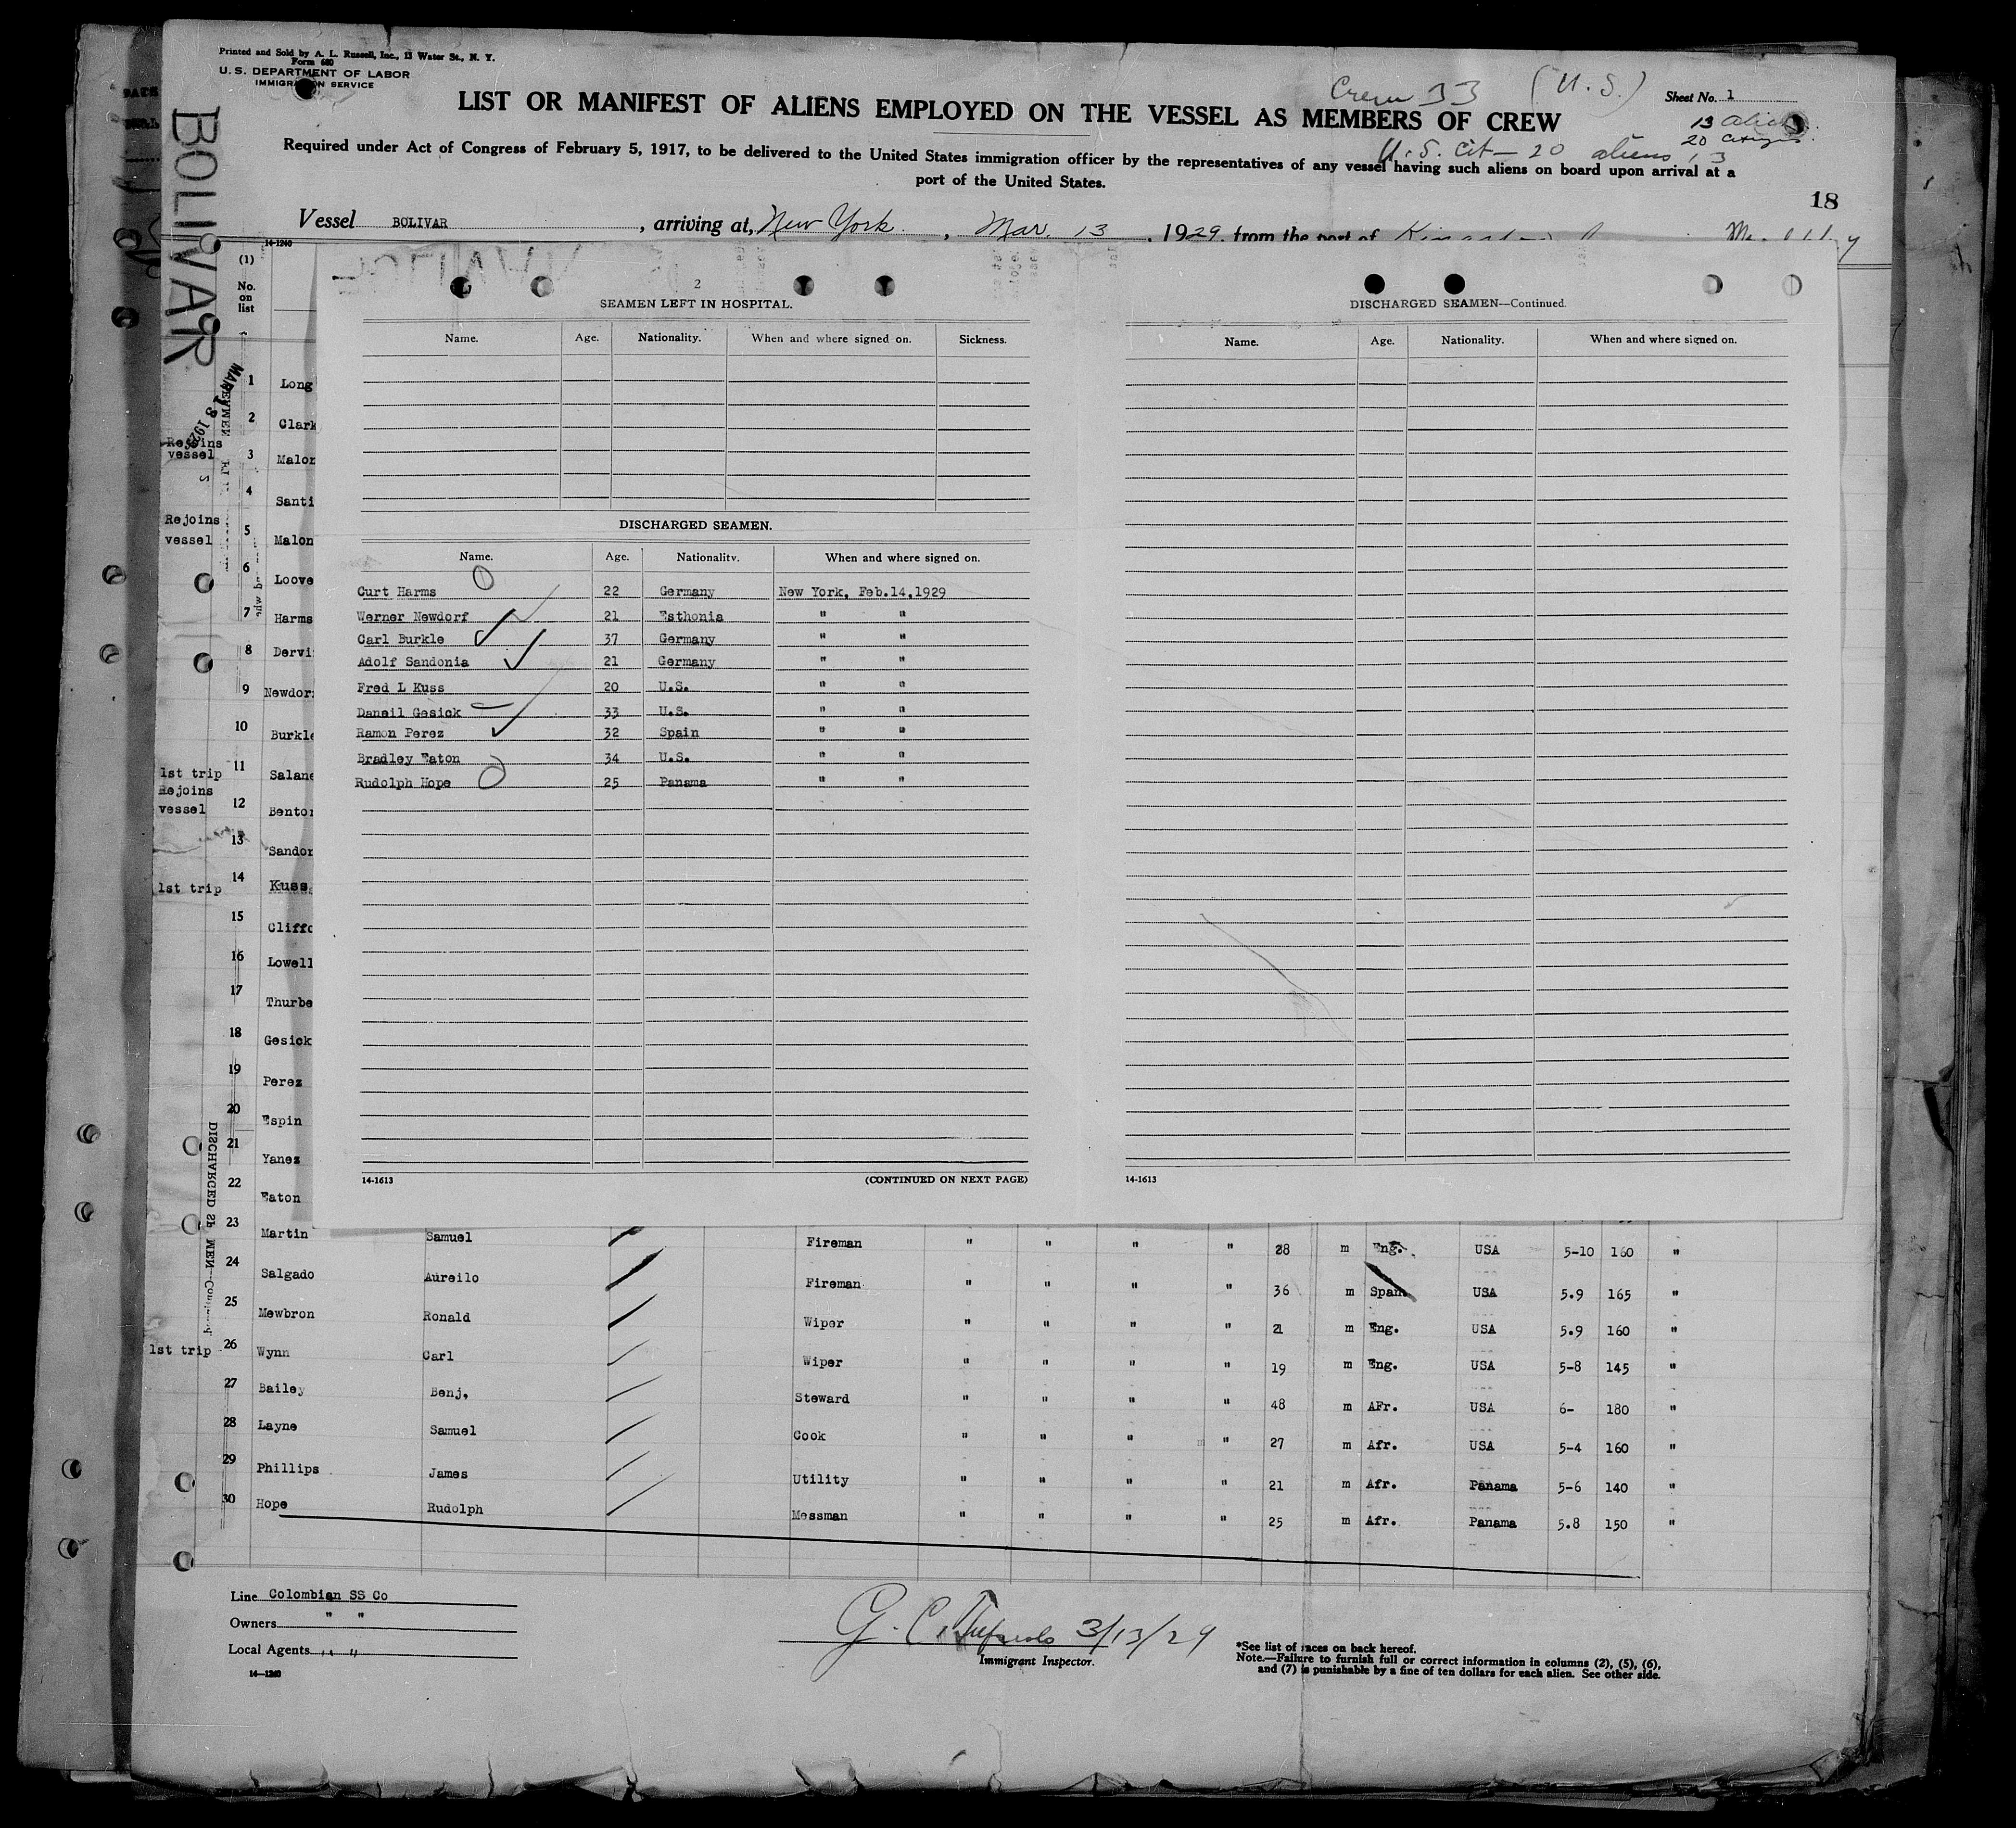 Printed and Sold by A. L. Russell, Inc., 13 Water St., N. Y.
Form 680
U. S. DEPARTMENT OF LABOR
IMMIGRATION SERVICE
Crew 33 (U. S.)
Sheet No. 1
LIST OR MANIFEST OF ALIENS EMPLOYED ON THE VESSEL AS MEMBERS OF CREW
13 Aliens
20 Citizens
U. S. Cit - 20 aliens 13
Required under Act of Congress of February 5, 1917, to be delivered to the United States immigration officer by the representatives of any vessel having such aliens on board upon arrival at a
port of the United States.
18
BOLIVAR
Vessel BOLIVAR, arriving at, New York, Mar. 13, 1929, from the port of
14-1240
(1)
No.
on
list
2
SEAMEN LEFT IN HOSPITAL.
Name. Age. Nationality. When and where signed on. Sickness.
DISCHARGED SEAMEN.
Name. Age. Nationality. When and where signed on.
Curt Harms 22 Germany New York, Feb.14,1929
Werner Newdorf 21 Esthonia " "
Carl Burkle 37 Germany " "
Adolf Sandonia 21 Germany " "
Fred L Kuss 20 U.S. " "
Daneil Gesick 33 U.S. " "
Ramon Perez 32 Spain " "
Bradley Eaton 34 U.S. " "
Rudolph Hope 25 Panama " "
14-1613 (CONTINUED ON NEXT PAGE)
DISCHARGED SEAMEN—Continued.
Name. Age. Nationality. When and where signed on.
14-1613
1 Long
2 Clark
Rejoins
vessel 3 Malon
4 Santi
Rejoins
vessel 5 Malon
6 Loove
7 Harms
8 Dervi
9 Newdor
10 Burkle
1st trip 11 Salane
Rejoins
vessel 12 Benton
13 Sandon
1st trip 14 Kuss
15 Cliffo
16 Lowell
17 Thurbe
18 Gesick
19 Perez
20 Espin
21 Yanez
22 Eaton
23 Martin Samuel Fireman " " " " 28 m Eng. USA 5-10 160 "
24 Salgado Aureilo Fireman " " " " 36 m Span. USA 5.9 165 "
25 Mewbron Ronald Wiper " " " " 21 m Eng. USA 5.9 160 "
1st trip 26 Wynn Carl Wiper " " " " 19 m Eng. USA 5-8 145 "
27 Bailey Benj, Steward " " " " 48 m AFr. USA 6- 180 "
28 Layne Samuel Cook " " " " 27 m Afr. USA 5-4 160 "
29 Phillips James Utility " " " " 21 m Afr. Panama 5-6 140 "
30 Hope Rudolph Messman " " " " 25 m Afr. Panama 5.8 150 "
Line Colombian SS Co
Owners " "
Local Agents " "
14—1240
G. C. 3/13/29
Immigrant Inspector.
*See list of races on back hereof.
Note.—Failure to furnish full or correct information in columns (2), (5), (6),
and (7) is punishable by a fine of ten dollars for each alien. See other side.